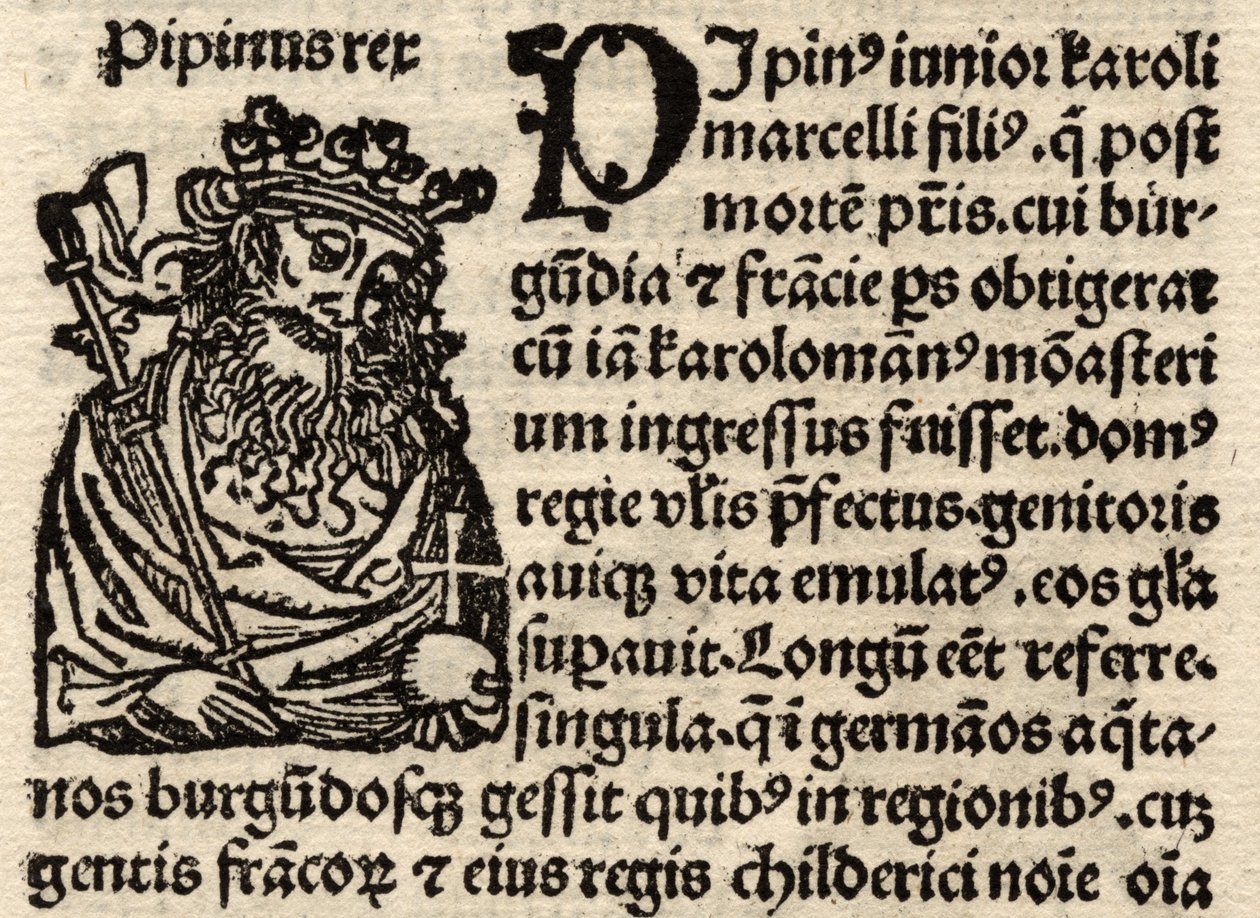 Pipinus rex
PJpinꝰ iunior karoli
marcelli filiꝰ .q̄ post
mortē pr̄is. cui bur-
gūdia ⁊ frācie ꝑs obtigerat
cū iā karolomānꝰ mōasteri
um ingressus fuisset. domꝰ
regie vƚis p̄fectus. genitoris
auiqꝫ vita emulatꝰ .eos gƚa
suꝑauit. Longū eēt referre.
singula. q̄ ī germāos aq̄ta-
nos burgūdosqꝫ gessit quibꝰ in regionibꝰ .cuꝫ
gentis frācoꝝ ⁊ eius regis childerici noīe oīa